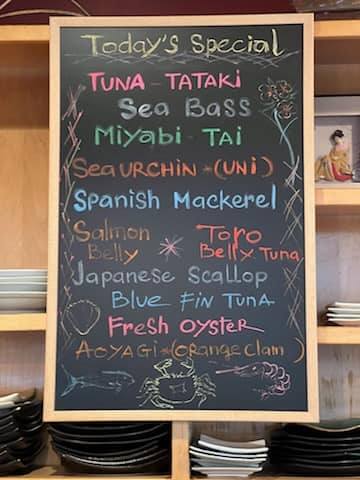 Today's Special
TUNA - TATAKI
Sea Bass
Miyabi - TAI
Sea URCHIN *(UNI)
Spanish Mackerel
Salmon Belly * Toro Belly Tuna
Japanese Scallop
Blue Fin Tuna
Fresh Oyster
AOYAGI *(Orange Clam)